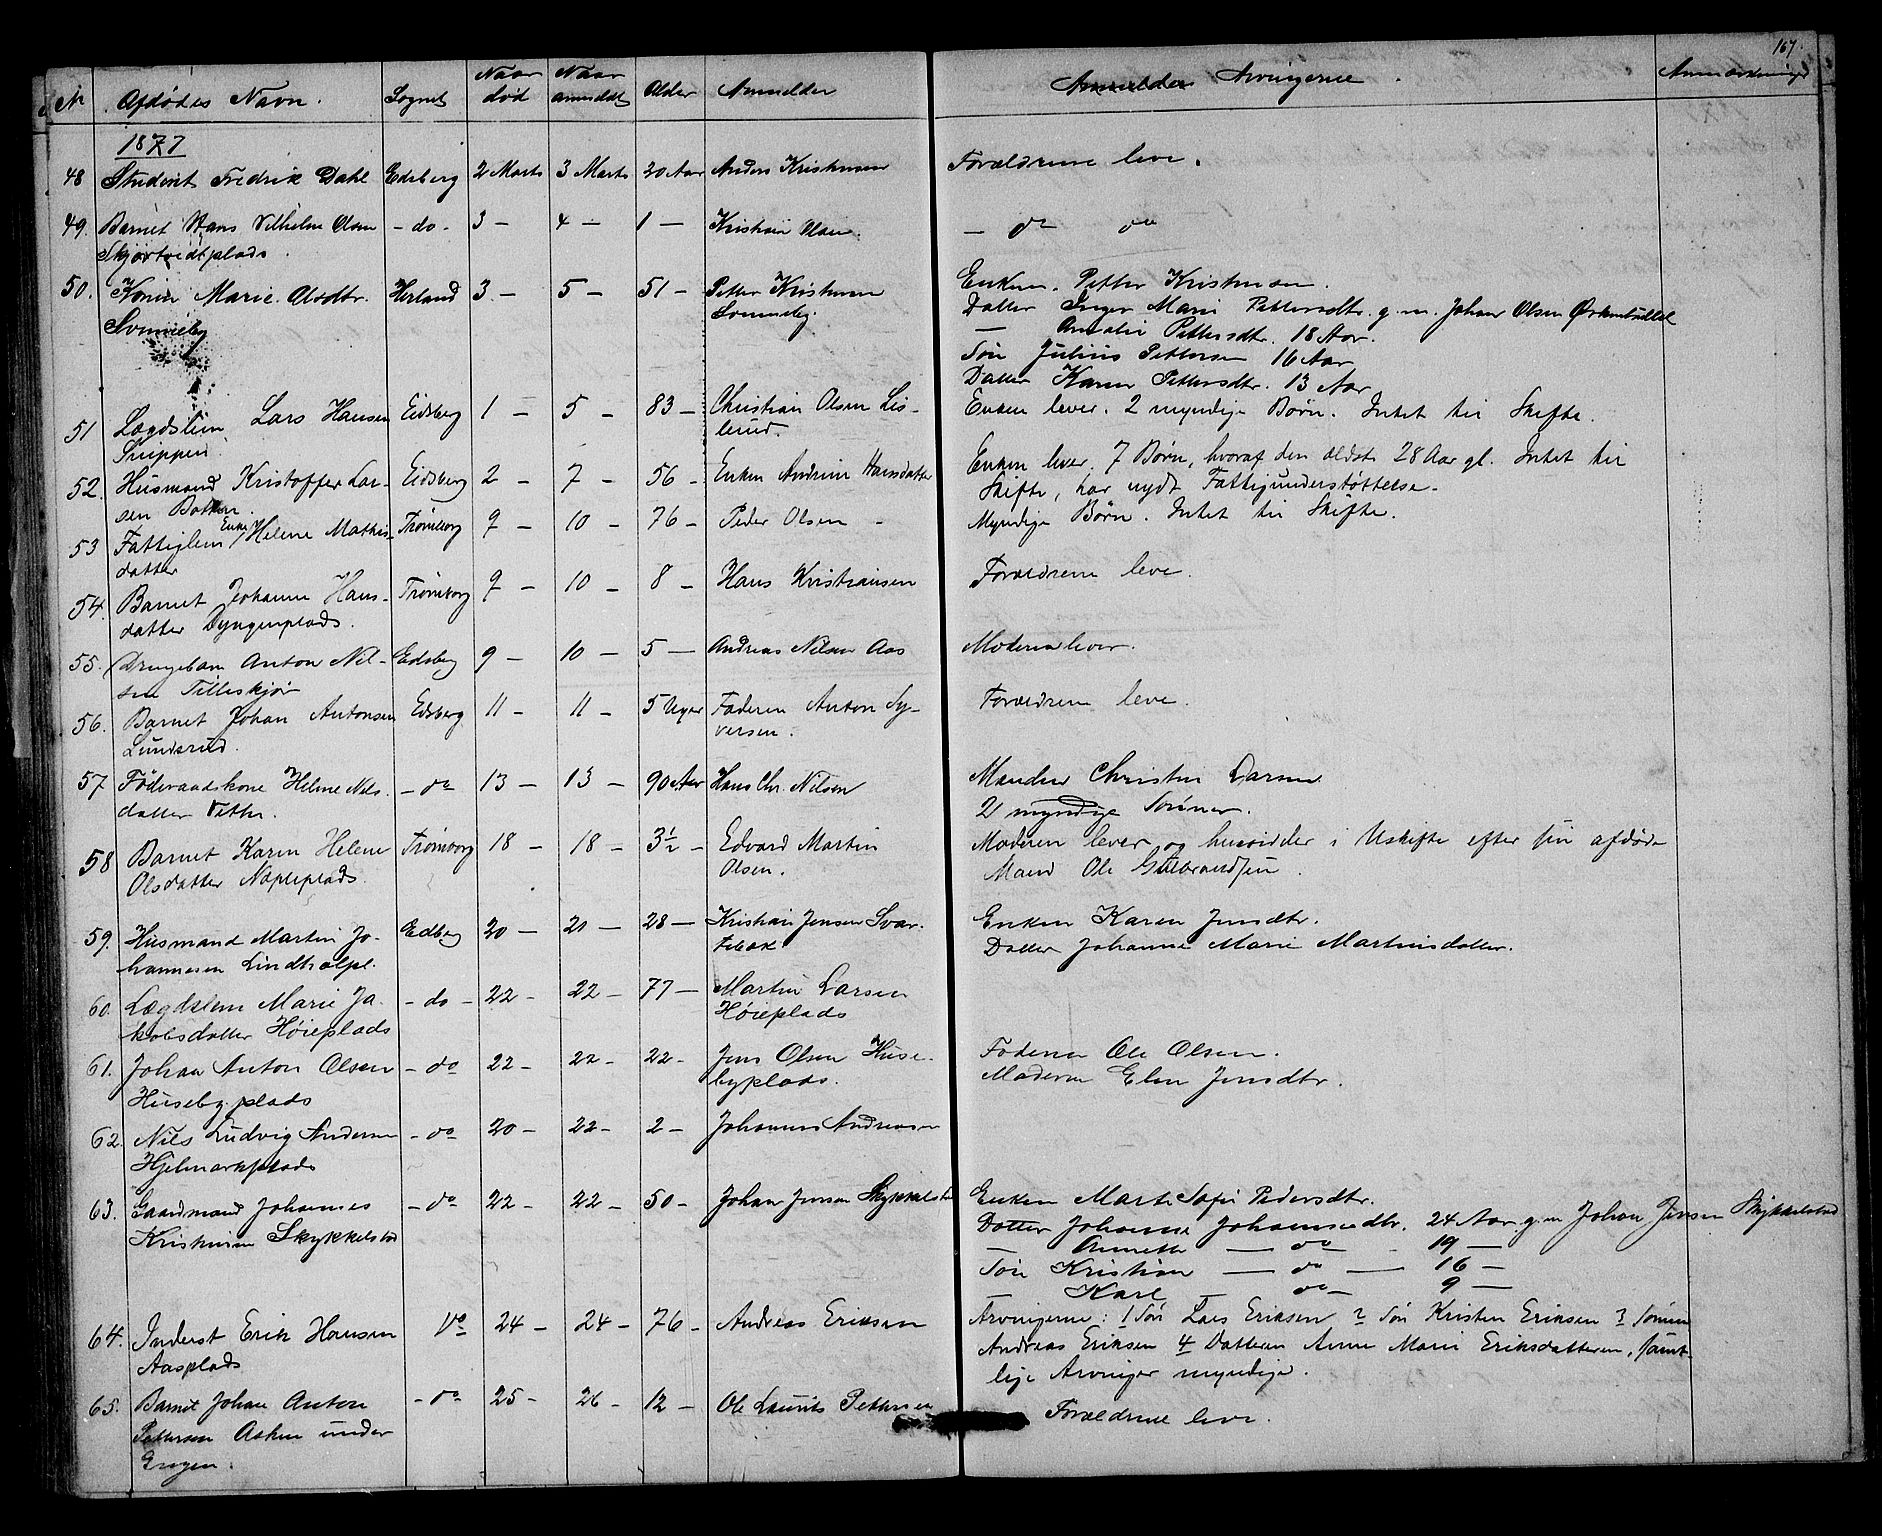 167.
No Afdødes Navn. Sognet Naar død Naar anmeldt Alder Anmelder Anmelder Arvingerne Anmærkninger
1877
48 Student Fredrik Dahl Edsberg 2 Marts 3 Marts 20 Aar Anders Kristiansen Forældrene leve.
49. Barnet Hans Vilhelm Olsen - do - 3 - 4 - 1 - Kristian Olsen - do do
Skjørtvedtplads.
50. Karen Marie Olsdtr. Herland 3 - 5 - 51 - Petter Kristiansen Enkem. Petter Kristiansen
Sonneby Sonneby. Datter Inger Marie Pettersdtr. g. m. Johan Olsen
— Amalie Pettersdtr. 18 Aar.
Søn Julius Pettersen 16 Aar
Datter Karen Pettersdtr. 13 Aar
51 Lægdslem Lars Hansen Eidsberg 1 - 5 - 83 - Christian Olsen Lis- Enken lever. 2 myndige Børn. Intet til Skifte.
Snippen lerud.
52. Husmand Kristoffer Lar- Eidsberg 2 - 7 - 56 - Enken Andrine Hansdatter Enken lever. 7 Børn, hvoraf den ældste 28 Aar gl. Intet til
sen Botten. Skifte, har nydt Fattigunderstøttelse.
53 Fattiglem Enke Helene Mathis- Trømborg 9 - 10 - 76 - Peder Olsen - Myndige Børn. Intet til Skifte.
datter
54. Barnet Johanne Hans- Trømborg 9 - 10 - 8 - Hans Kristiansen Forældrene leve.
datter Dyngenplads.
55. Drengebarn Anton Nil- Edsberg 9 - 10 - 5 - Andreas Nilsen Aas Moderen lever.
sen Tilleskjør
56. Barnet Johan Antonsen Edsberg 11 - 11 - 5 Uger Faderen Anton Sy- Forældrene leve.
Lundsrud. versen.
57 Føderaadskone Helene Nils- - do 13 - 13 - 90 Aar Hans Chr. Nilsen Manden Christen Larsen
datter 2 myndige Sønner.
58 Barnet Karen Helene Trømborg 18 - 18 - 3½ - Edvard Martin Moderen lever og hensidder i Uskifte efter sin afdøde
Olsdatter Olsen. Mand Ole Gulbrandsen.
59. Husmand Martin Jo- Edberg 20 - 21 - 28 - Kristian Jensen Svar- Enken Karen Jensdtr.
hannesen Lindholpl. tebæk Datter Johanne Marie Martinsdatter.
60. Lægdslem Marie Ja- - do - 22 - 22 - 77 - Martin Larsen
kobsdatter Høieplads Høieplads
61. Johan Anton Olsen - do 22 - 22 - 22 - Jens Olsen Huse- Faderen Ole Olsen.
Husebyplads byplads. Moderen Elen Jensdtr.
62. Nils Ludvig Andersen - do 20 - 22 - 2 - Johannes Andreasen
Hjelmarkplads
63. Gaardmand Johannes - do 22 - 22 - 50 - Johan Jensen Skykkelstad Enken Marte Sofie Pedersdtr.
Kristiansen Skykkelstad Datter Johanne Johannesdtr. 24 Aar g. m. Johan Jensen Skykkelstad
— Annette — do - 19 -
Søn Kristian — do — 16 -
Karl — do - 9 -
64. Inderst Erik Hansen do 24 - 24 - 76 - Andreas Eriksen Arvingerne: 1 Søn Lars Eriksen 2 Søn Kristen Eriksen 3 Sønnen
Aasplads Andreas Eriksen 4 Datteren Anne Marie Eriksdatteren, samt-
lige Arvinger myndige.
65. Barnet Johan Anton - do 25 - 26 - 12 - Ole Laurits Pettersen Forældrene leve.
Pettersen Askim under
Engen.